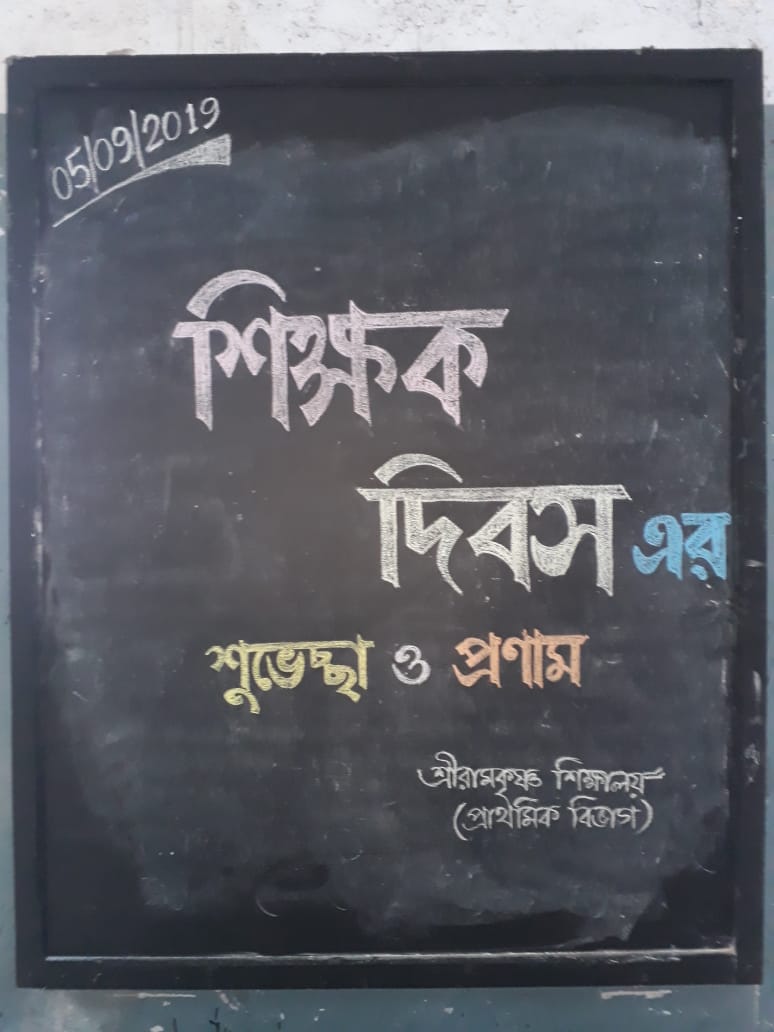 05/09/2019
শিক্ষক
দিবস এর
শুভেচ্ছা ও প্রণাম
শ্রীরামকৃষ্ণ শিক্ষালয়
(প্রাথমিক বিভাগ)